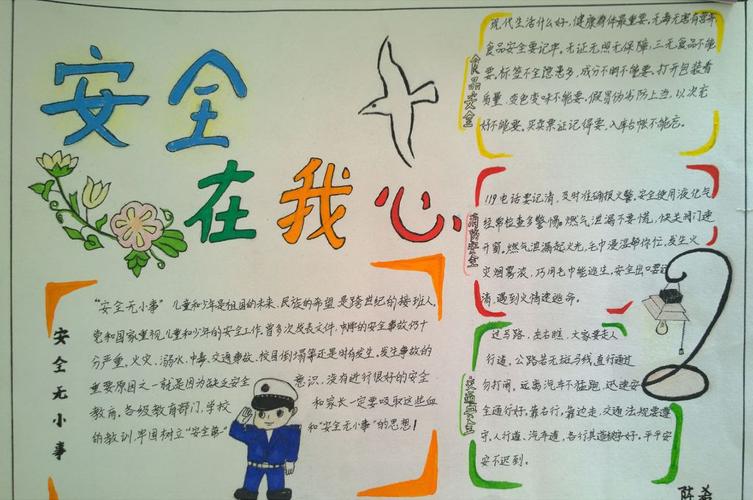 安全
在我心
食品安全
现代生活什么好，健康群体最重要，无毒无害有营养，
食品安全要记牢。无证无照无保障，三无食品不能
要，标签不全隐患多，成分不明不能要。打开包装看
质量，变色变味不能要，假冒伪劣防上当，以次充
好不能要。买卖票证记得要，入库占帐不能忘。
消防安全
119电话要记清，及时准确报火警。安全使用液化气
经常检查多警惕。燃气泄漏不要慌，快关阀门速
开窗。燃气泄漏起火光，毛巾浸湿帮你忙，发生火
灾烟雾浓，巧用毛巾能逃生，安全出口要
清，遇到火情速逃命。
交通安全
过马路，左右瞧，大家要走人
行道，公路若无斑马线，直行通过
勿打闹。远离汽车不猛跑，迅速安
全通行好。靠右行，靠边走，交通法规要遵
守，人行道，汽车道，各行其道好。平平安
安不迟到。
安全无小事
“安全无小事”儿童和少年是祖国的未来、民族的希望是跨世纪的接班人。
党和国家重视儿童和少年的安全工作，曾多次发表文件，中的安全事故仍十
分严重。火灾、溺水、中毒、交通事故、校园倒塌等还是时有发生。发生事故的
重要原因之一就是因为缺乏安全意识，没有进行很好的安全
教育。各级教育部门、学校和家长一定要吸取这些血
的教训，牢固树立“安全第一”和“安全无小事”的思想！
陈希